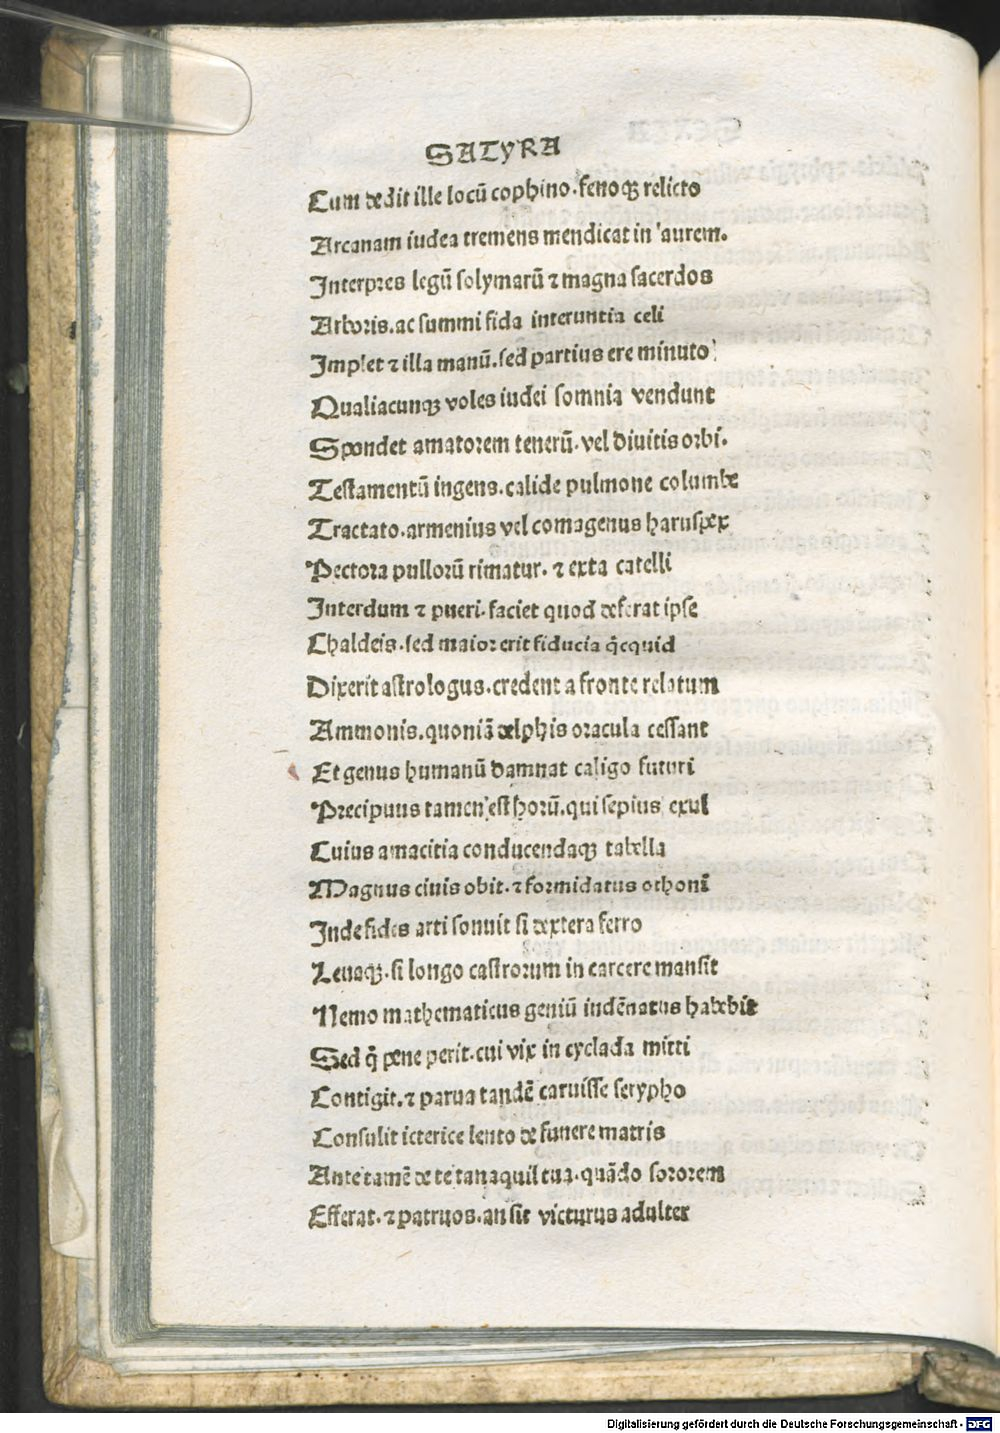 SATYRA
Cum dedit ille locū cophino. fenoqꝫ relicto
Arcanam iudea tremens mendicat in aurem.
Interpres legū solymarū ⁊ magna sacerdos
Arboris. ac summi fida interuntia celi
Implet ⁊ illa manū. sed partius ere minuto
Qualiacunqꝫ voles iudei somnia vendunt
Spondet amatorem tenerū. vel diuitis orbi.
Testamentū ingens. calide pulmone columbe
Tractato. armenius vel comagenus haruspex
Pectora pullorū rimatur. ⁊ exta catelli
Interdum ⁊ pueri. faciet quod deferat ipse
Chaldeis. sed maior erit fiducia q̄cquid
Dixerit astrologus. credent a fronte relatum
Ammonis. quoniā delphis oracula cessant
Et genus humanū damnat caligo futuri
Precipuus tamen est horū. qui sepius exul
Cuius amacitia conducendaqꝫ tabella
Magnus ciuis obit. ⁊ formidatus othoni
Inde fides arti sonuit si dextera ferro
Leuaqꝫ. si longo castrorum in carcere mansit
Nemo mathematicus geniū indēnatus habebit
Sed q̄ pene perit. cui vix in cyclada mitti
Contigit. ⁊ parua tandē caruisse serypho
Consulit icterice lento de funere matris
Ante tamē de te tanaquil tua. quādo sororem
Efferat. ⁊ patruos. an sit victurus adulter
Digitalisierung gefördert durch die Deutsche Forschungsgemeinschaft - DFG